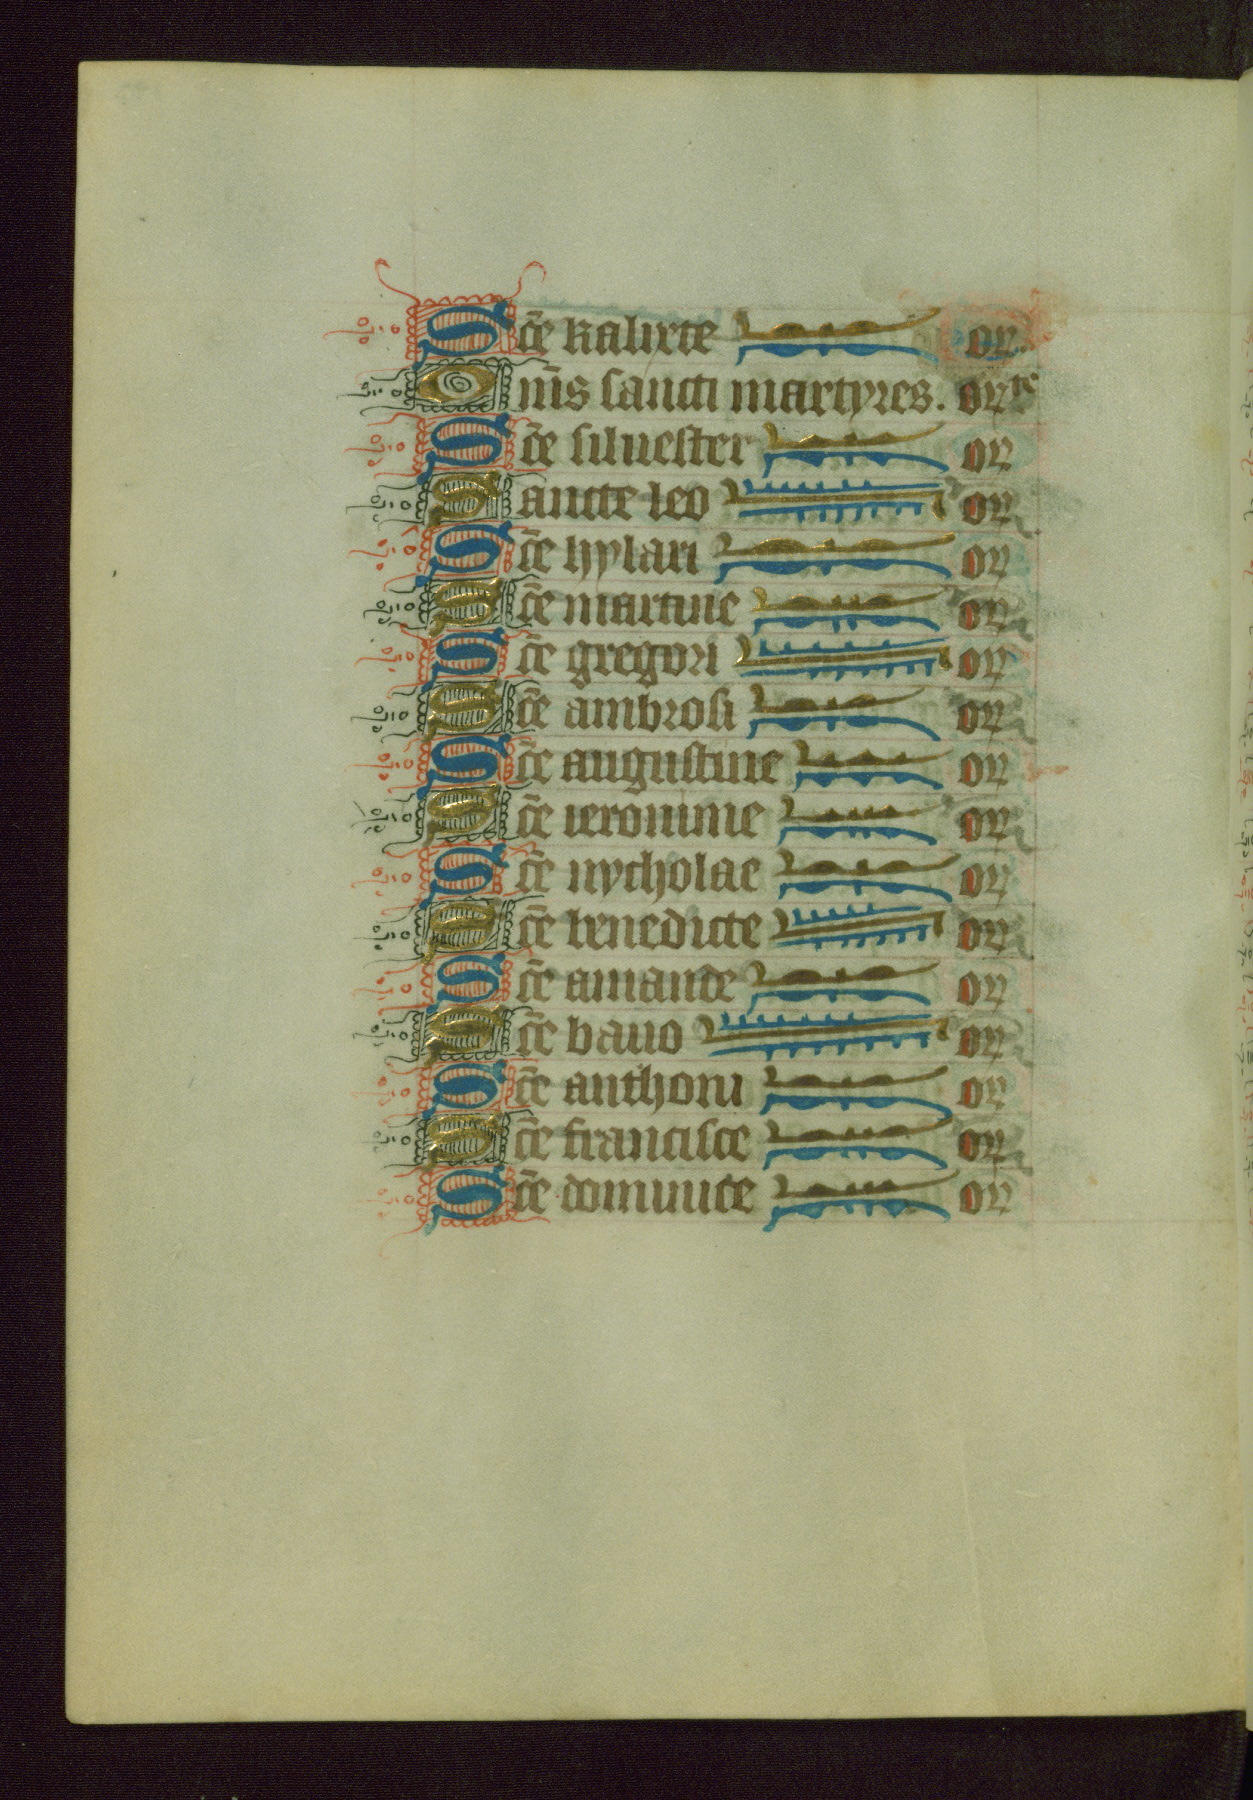 Sc̄e kalixte or.
Om̄s sancti martyres. orte
Sc̄e siluester or
Sancte leo or
Sc̄e hylari or
Sc̄e martine or
Sc̄e gregori or
Sc̄e ambrosi or
Sc̄e augustine or
Sc̄e ieronime or
Sc̄e nycholae or
Sc̄e benedicte or
Sc̄e amande or
Sc̄e bauo or
Sc̄e anthoni or
Sc̄e francisce or
Sc̄e dominice or